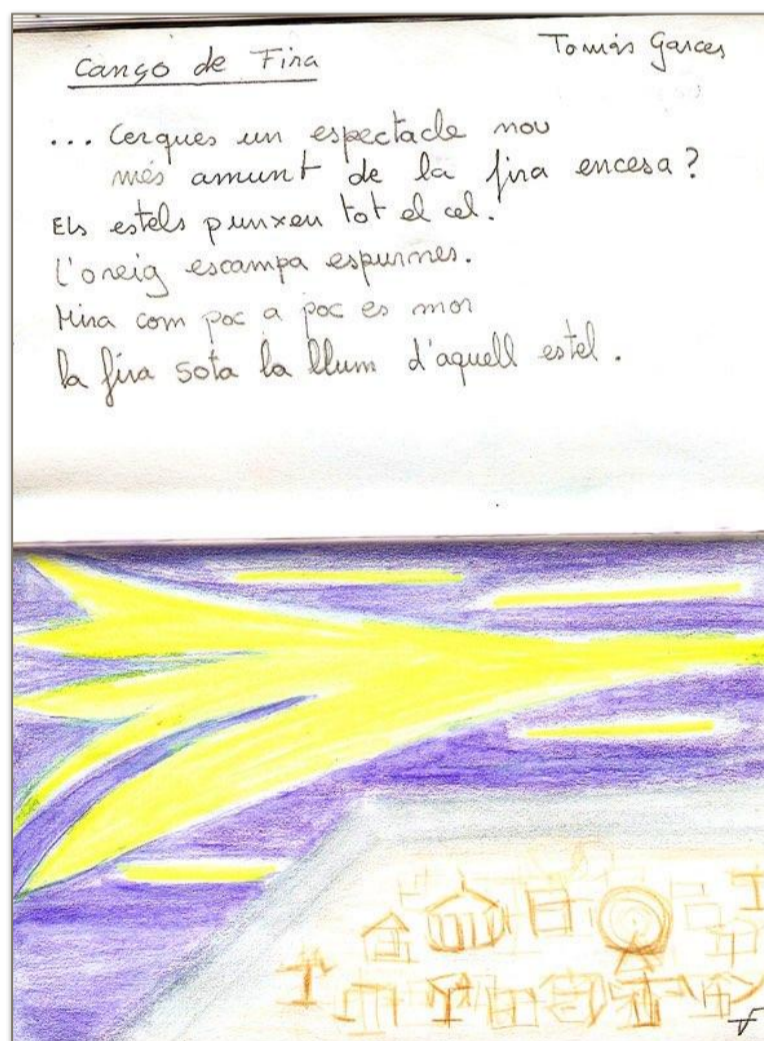 Cançó de Fira
Tomás Garces
... Cerques un espectacle nou
més amunt de la fira encesa?
Els estels punxen tot el cel.
L'oreig escampa espurnes.
Mira com poc a poc es mor
la fira sota la llum d'aquell estel.